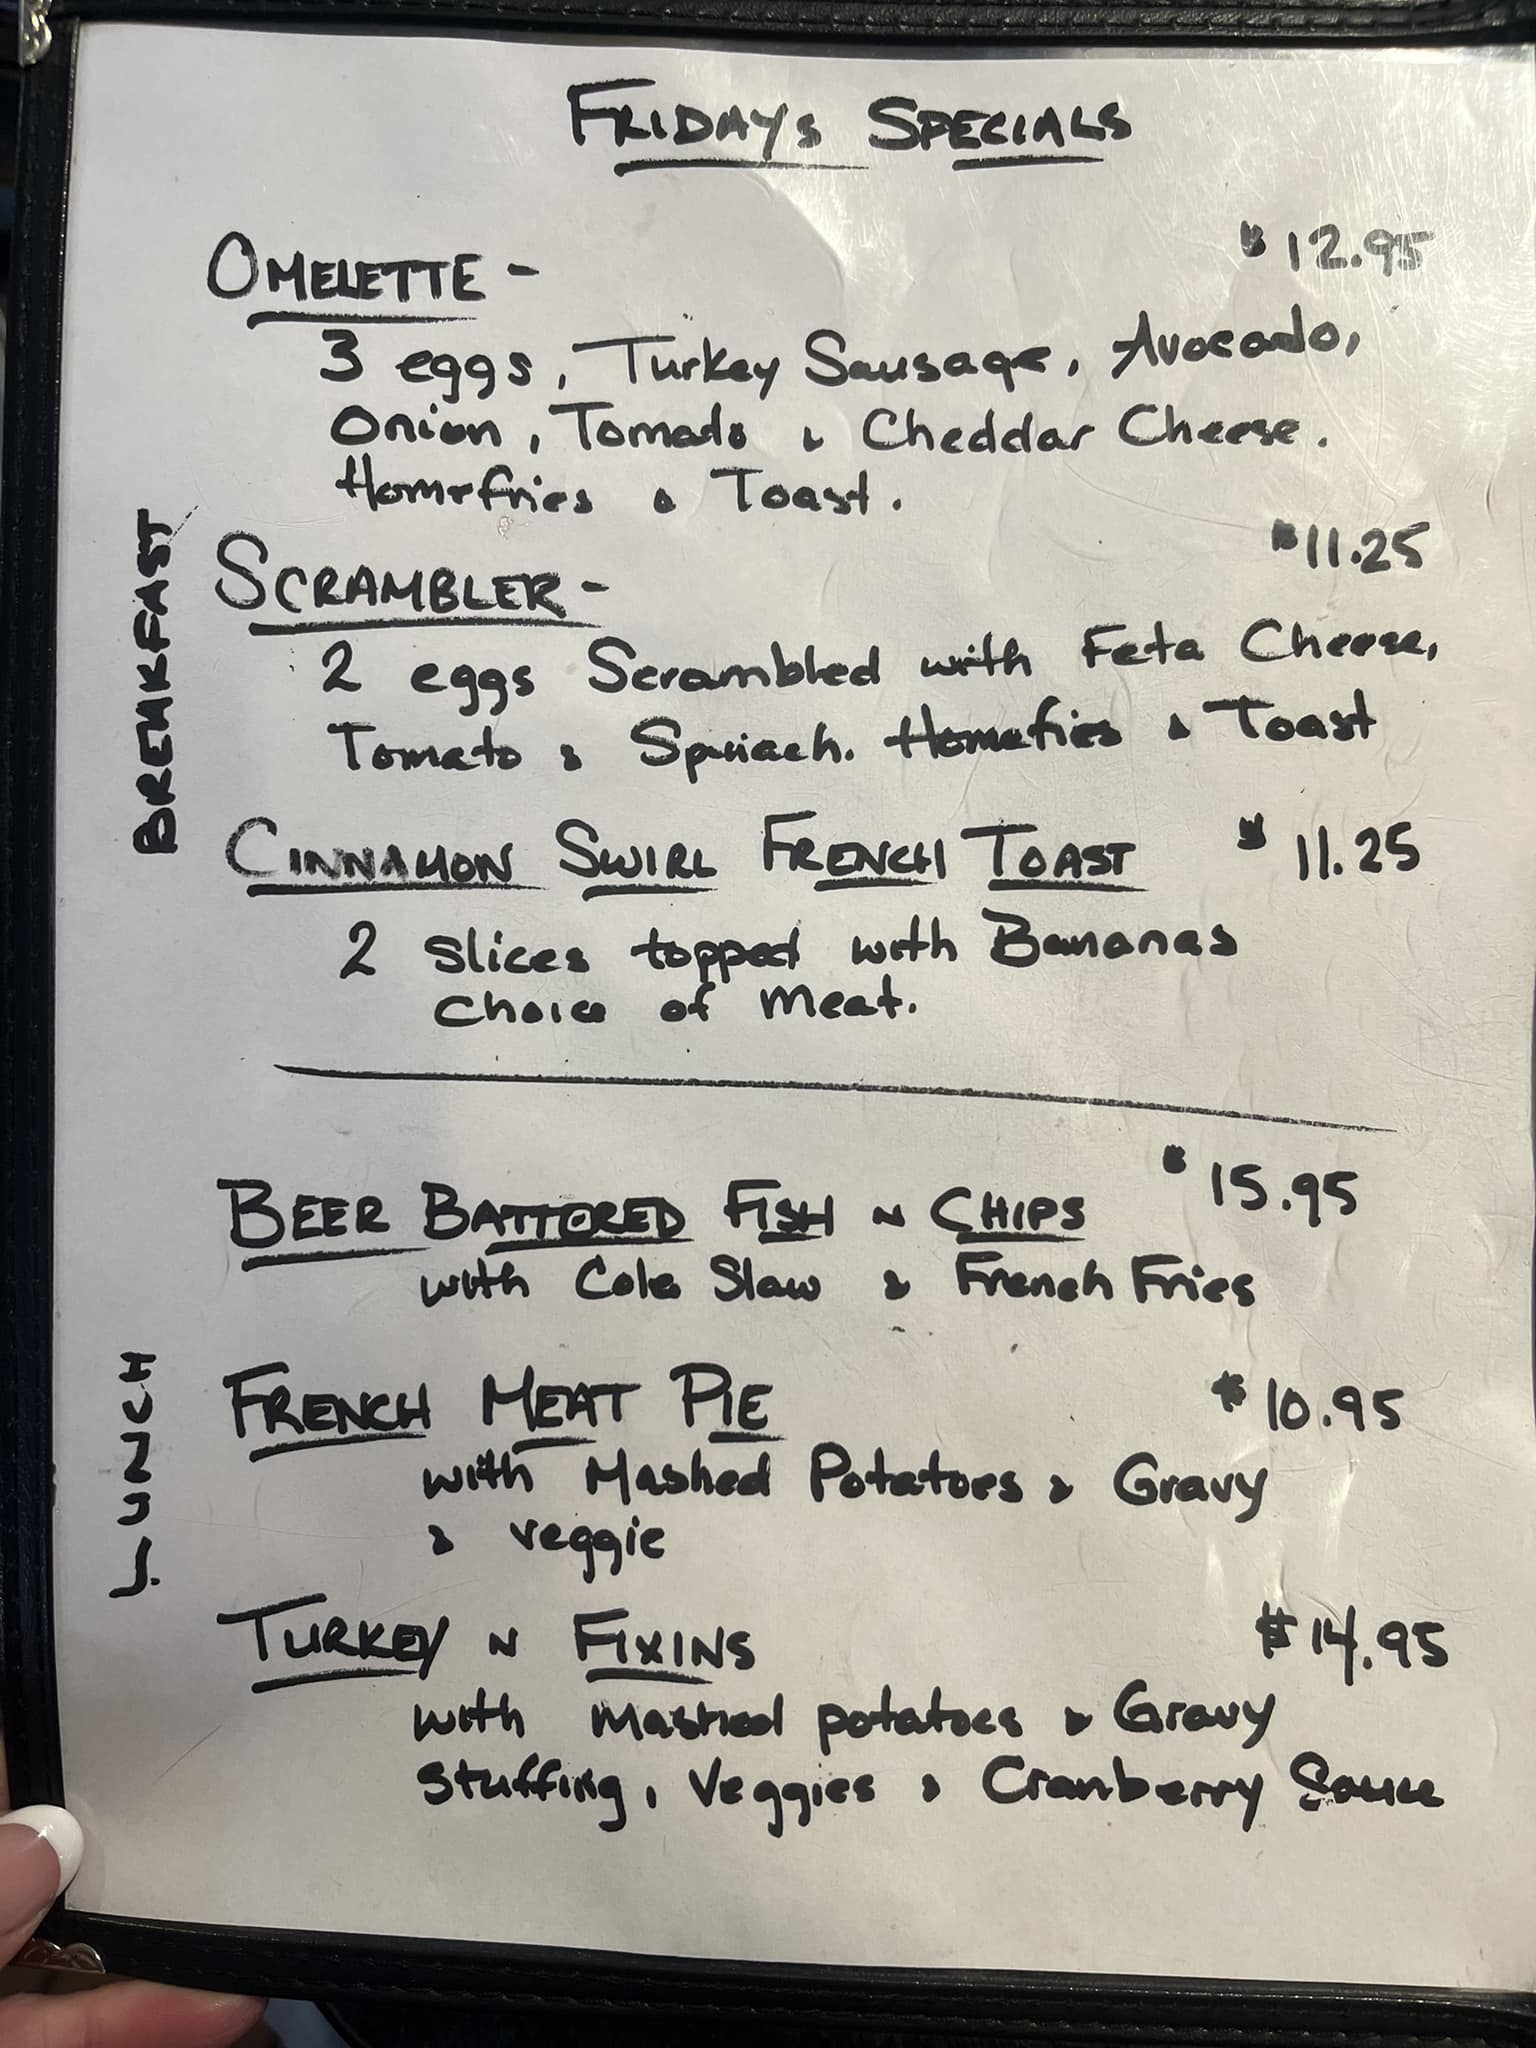 FRIDAYs SPECIALS
BREAKFAST
OMELETTE - $12.95
3 eggs, Turkey Sausage, Avocado,
Onion, Tomado & Cheddar Cheese.
Homefries & Toast.
SCRAMBLER - $11.25
2 eggs Scrambled with Feta Cheese,
Tomato & Spniach. Homefries & Toast
CINNAMON SWIRL FRENCH TOAST $11.25
2 slices topped with Bananas
choice of meat.
LUNCH
BEER BATTORED FISH N CHIPS $15.95
with Cole Slaw & French Fries
FRENCH MEAT PIE $10.95
with Mashed Potatoes & Gravy
& veggie
TURKEY N FIXINS $14.95
with Mashed potatoes & Gravy
Stuffing, Veggies & Cranberry Sauce